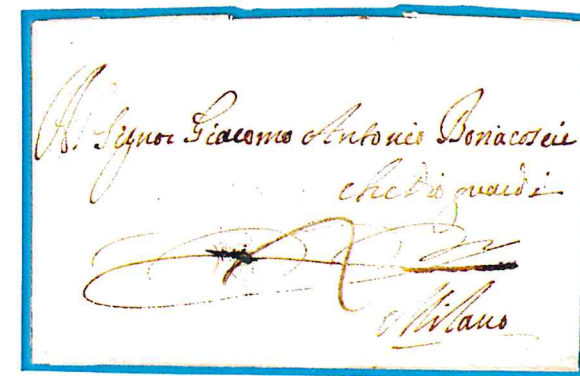 Al Signor Giacomo Antonio Bonacosciè
che Dio guardi
Milano